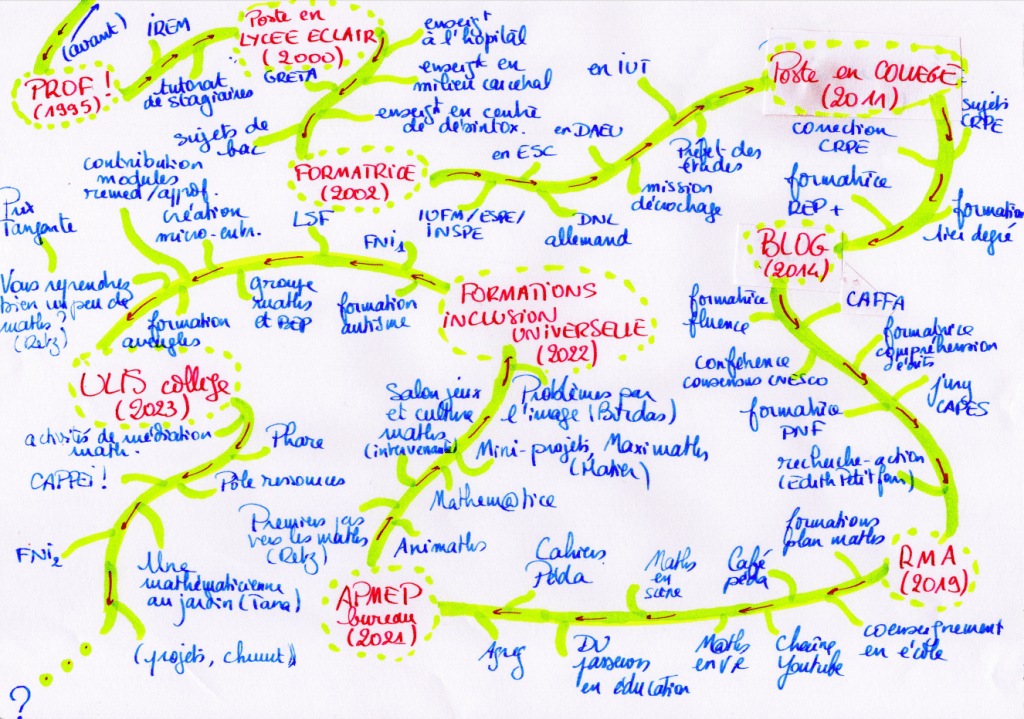 (avant)
PROF !
(1995)
IREM
tutorat
de stagiaires
Poste en
LYCEE ECLAIR
(2000)
GRETA
enseigt
à l'hôpital
enseigt en
milieu carcéral
enseigt en centre
de désintox.
sujets de
bac
FORMATRICE
(2002)
en ESC
IUFM/ESPE/
INSPE
en DAEU
DNL
allemand
en IUT
mission
décrochage
Préfet des
études
Poste en COLLEGE
(2011)
sujets
CRPE
correction
CRPE
formatrice
REP +
formation
1er degré
BLOG
(2014)
CAFFA
formatrice
fluence
formatrice
compréhension
d'écrits
Conférence
consensus CNESCO
jury
CAPES
formatrice
PNF
recherche-action
(Edith Petitfour)
RMA
(2019)
formations
plan maths
coenseignement
en école
Chaîne
Youtube
Café
péda
M@ths
en VR
Maths
en
scène
DU
passeurs
en éducation
Cahiers
Péda
Agreg
APMEP
bureau
(2021)
Animaths
Premiers pas
vers les maths
(Retz)
Mathem@tice
Mini-projets, Maximaths
(Hatier)
Salon jeux
et culture
maths
(intervenante)
Problèmes par
l'image (Bordas)
FORMATIONS
INCLUSION
UNIVERSELLE
(2022)
FNI1
formation
autisme
LSF
groupe
maths
et BEP
création
micro-entr.
contribution
modules
remed/approf.
formation
aveugles
Prix
Tangente
Vous reprendrez
bien un peu de
maths ?
(Retz)
ULIS collège
(2023)
activités de médiation
math.
Phare
Pôle ressources
CAPPEI !
FNI2
Une
mathématicienne
au jardin (Tana)
(projets, chuuut)
?